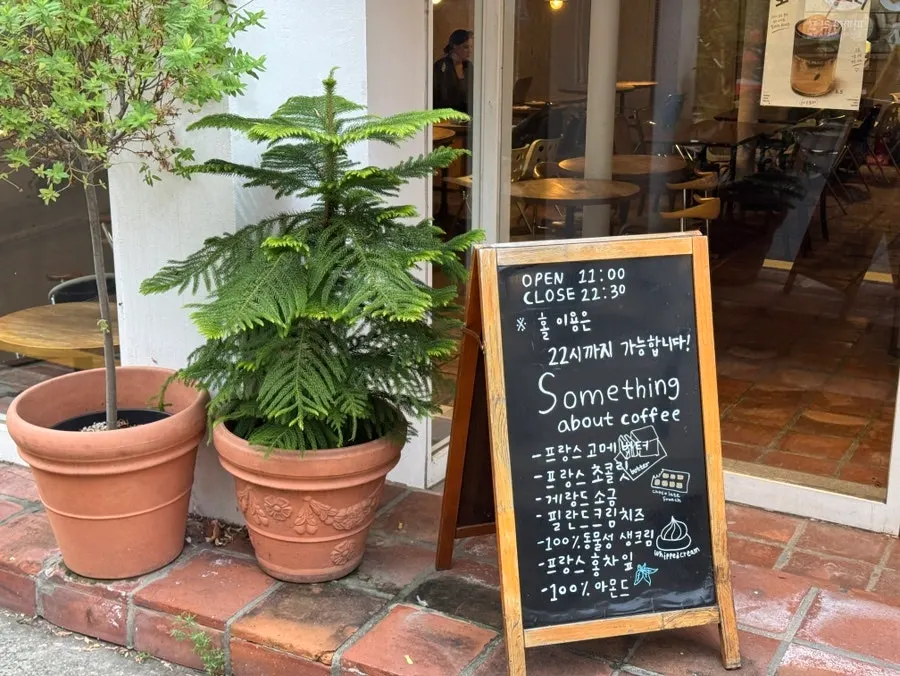 OPEN 11:00
CLOSE 22:30
※ 홀 이용은
22시까지 가능합니다!
Something
about coffee
-프랑스 고메 버터
butter
-프랑스 초콜릿
-게랑드 소금
chocolate
french
-핀란드크림치즈
-100% 동물성 생크림
whippedcream
-프랑스 홍차잎
-100% 아몬드